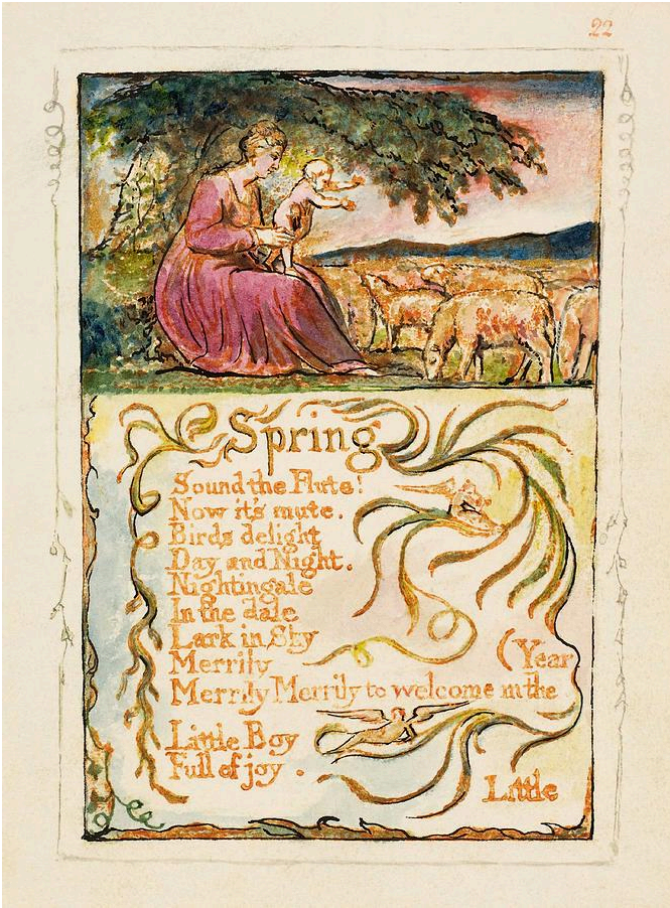 22
Spring
Sound the Flute!
Now it's mute.
Birds delight
Day and Night.
Nightingale
In the dale
Lark in Sky
Merrily
(Year
Merrily Merrily to welcome in the
Little Boy
Full of joy.
Little